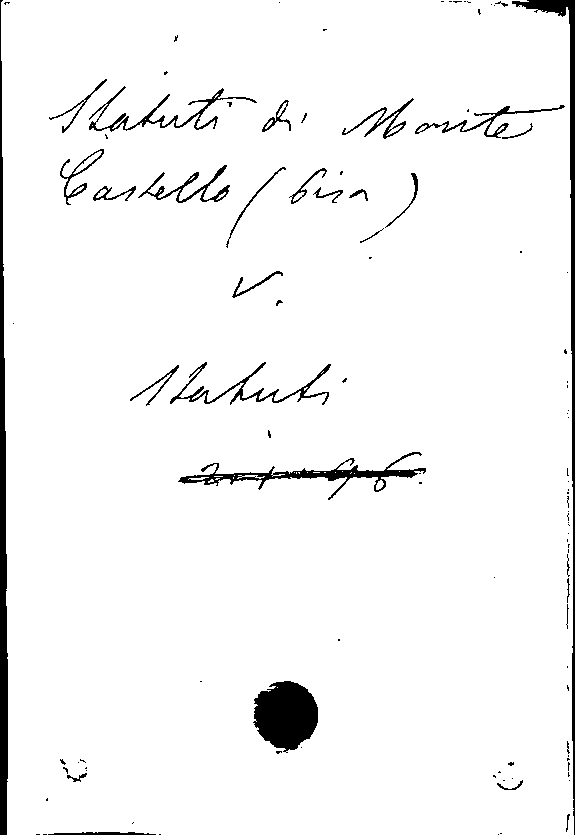 Statuti di Monte
Castello (Pisa)
V.
Statuti